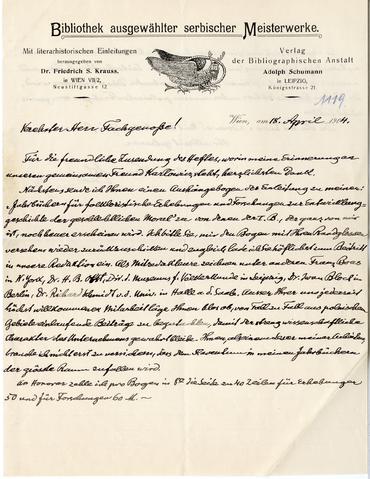 Bibliothek ausgewählter serbischer Meisterwerke.
Mit literarhistorischen Einleitungen
herausgegeben von
Dr. Friedrich S. Krauss,
in WIEN VII/2,
Neustiftgasse 12.
Verlag
der Bibliographischen Anstalt
Adolph Schumann
in LEIPZIG,
Königsstrasse 21.
1119
Wien, am 18. April 1904.
Verehrter Herr Fachgenosse!
Für die freundliche Zusendung des Heftes, worin meine Erinnerung an
unseren gemeinsamen Freund Karłowicz steht, herzlichsten Dank.
Nächstens sende ich Ihnen einen Aushängebogen der Einleitung zu meinen:
Jahrbüchern für folkloristische Erhebungen und Forschungen zur Entwicklung-
geschichte der geschlechtlichen Moral" von denen der I. B., der ganz von mir
ist, noch heuer erscheinen wird. Ich bitte Sie, mir den Bogen mit Ihren Randglossen
versehen wieder zurückzuschicken und zugleich lade ich Sie höflichst zum Beitritt
in unsere Redaktion ein. Als Mitredakteure zeichnen unter anderen Franz Boas
in N. York, Dr. H. B. Obst, Dir. d. Museums f. Völkerkunde in Leipzig, Dr. Iwan Bloch in
Berlin, Dr. Richard Schmidt v. d. Univ. in Halle a. d. Saale. Ausser Ihrer uns jederzeit
höchst willkommenen Mitarbeit läge Ihnen blos ob, von Fall zu Fall aus polnischem
Gebiete einlaufende Beiträge zu begutachten, damit der streng wissenschaftliche
Charakter des Unternehmens gewahrt bleibe. Ihnen, als einem der meine Arbeiten
brauche ich nicht erst zu versichern, das den Slaventum in meinen Jahrbüchern
der grösste Raum zufallen wird.
an Honorar zahle ich pro Bogen in 8° die Seite zu 40 Zeilen für Erhebungen
50 und für Forschungen 60 M.